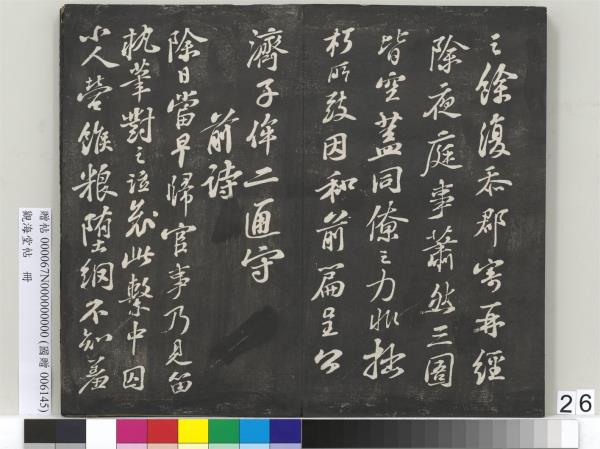 之餘復忝郡寄再經
除夜庭事蕭然三圄
皆空蓋同僚之力非拙
朽所致因和前篇呈公
濟子侔二通守
前詩
除日當早歸官事乃見留
執筆對之泣哀此繫中囚
小人營餱粮墮網不知羞
贈帖 000067N000000000 (國贈 006145)
觀海堂帖 冊
26